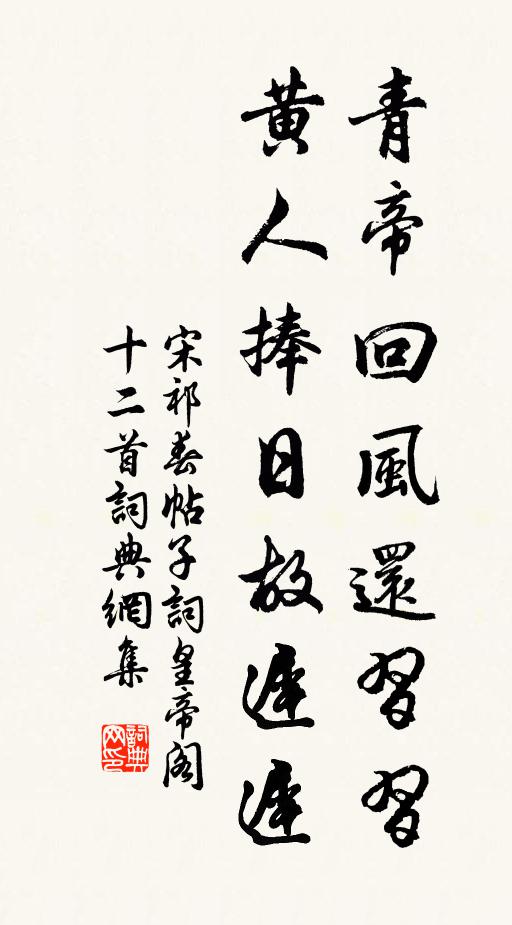 青帝回風還習習
黃人捧日故遲遲
宋祁春帖子詞皇帝閣
十二首詞典網集
詞典
网印